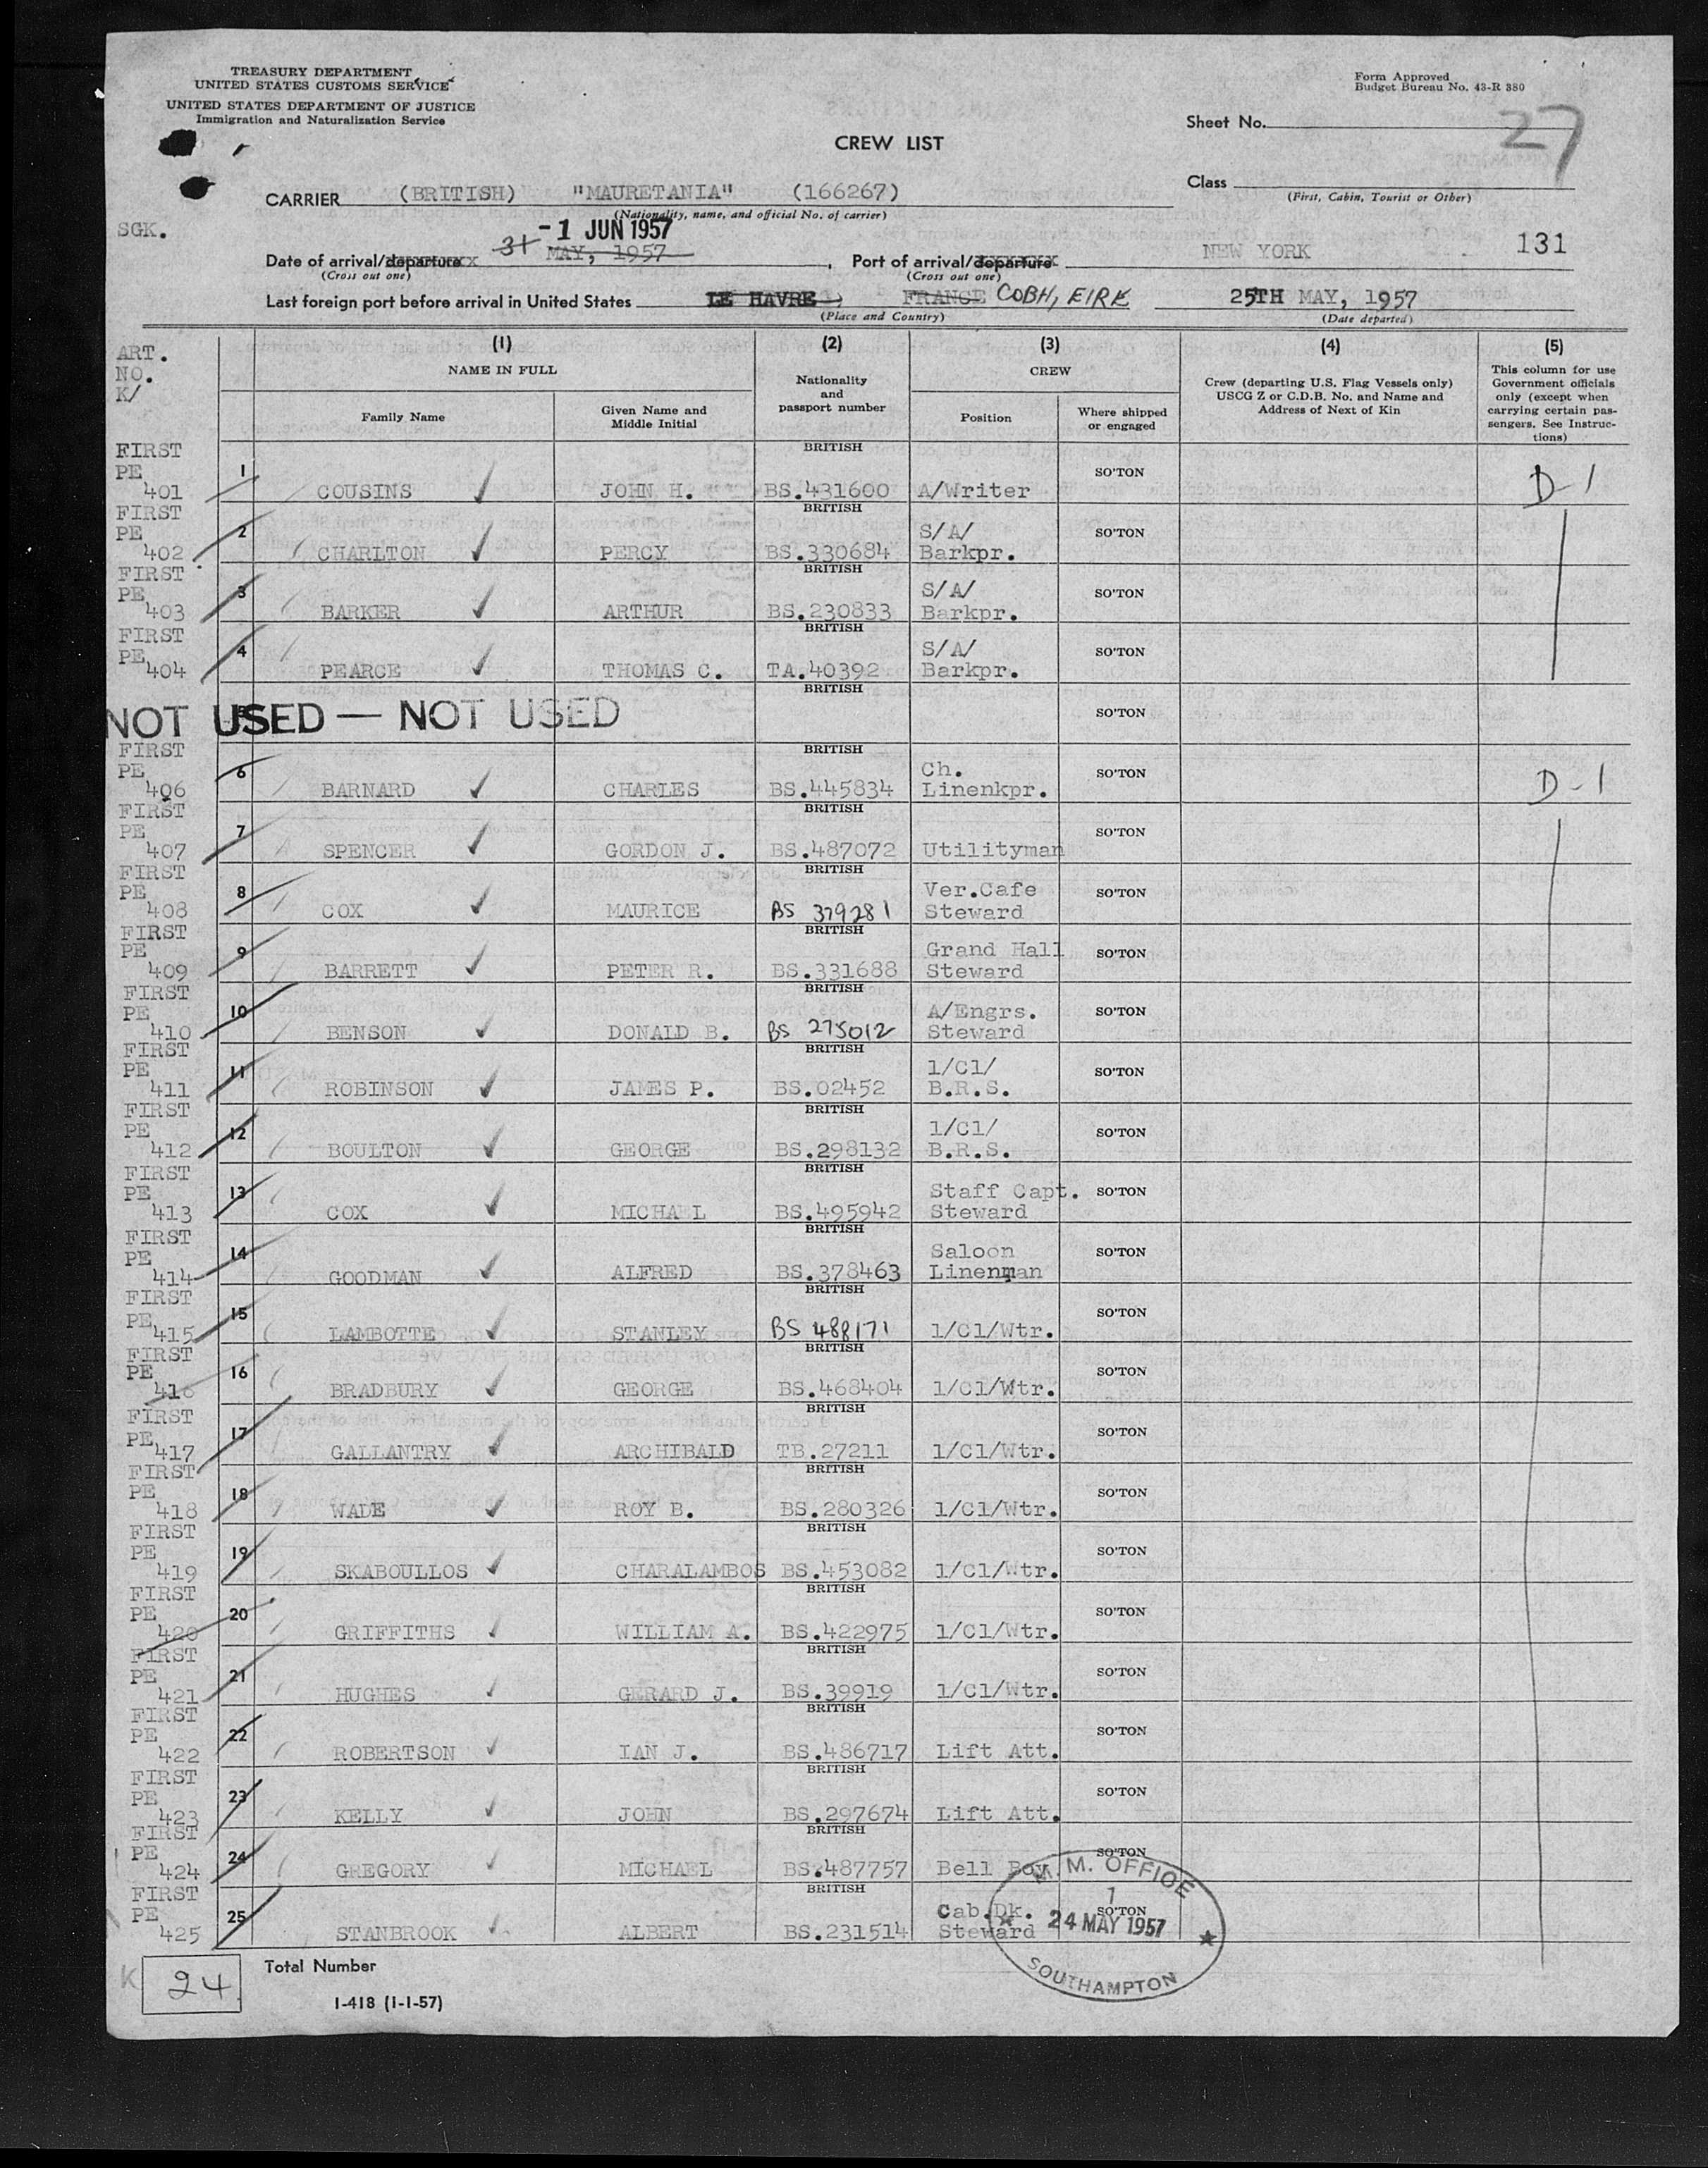 TREASURY DEPARTMENT
UNITED STATES CUSTOMS SERVICE
UNITED STATES DEPARTMENT OF JUSTICE
Immigration and Naturalization Service
Form Approved
Budget Bureau No. 43-R 380
Sheet No. 27
CREW LIST
Class
(First, Cabin, Tourist or Other)
CARRIER (BRITISH) "MAURETANIA" (166267)
(Nationality, name, and official No. of carrier)
SGK.
-1 JUN 1957
Date of arrival/departure 31 MAY, 1957, Port of arrival/departure NEW YORK 131
(Cross out one) (Cross out one)
Last foreign port before arrival in United States LE HAVRE, FRANCE COBH, EIRE 25TH MAY, 1957
(Place and Country) (Date departed)
ART. NO. K/
(1) (2) (3) (4) (5)
NAME IN FULL
Family Name
Given Name and Middle Initial
Nationality and passport number
CREW
Position
Where shipped or engaged
Crew (departing U.S. Flag Vessels only)
USCG Z or C.D.B. No. and Name and
Address of Next of Kin
This column for use
Government officials
only (except when
carrying certain pas-
sengers. See Instruc-
tions)
FIRST PE 401 1 COUSINS JOHN H. BRITISH BS.431600 A/Writer SO'TON D-1
FIRST PE 402 2 CHARLTON PERCY BRITISH BS.330684 S/A/ Barkpr. SO'TON
FIRST PE 403 3 BARKER ARTHUR BRITISH BS.230833 S/A/ Barkpr. SO'TON
FIRST PE 404 4 PEARCE THOMAS C. BRITISH TA.40392 S/A/ Barkpr. SO'TON
NOT USED — NOT USED BRITISH SO'TON
FIRST PE 406 6 BARNARD CHARLES BRITISH BS.445834 Ch. Linenkpr. SO'TON D-1
FIRST PE 407 7 SPENCER GORDON J. BRITISH BS.487072 Utilityman SO'TON
FIRST PE 408 8 COX MAURICE BRITISH BS 379281 Ver.Cafe Steward SO'TON
FIRST PE 409 9 BARRETT PETER R. BRITISH BS.331688 Grand Hall Steward SO'TON
FIRST PE 410 10 BENSON DONALD B. BRITISH BS 275012 A/Engrs. Steward SO'TON
FIRST PE 411 11 ROBINSON JAMES P. BRITISH BS.02452 1/Cl/ B.R.S. SO'TON
FIRST PE 412 12 BOULTON GEORGE BRITISH BS.298132 1/Cl/ B.R.S. SO'TON
FIRST PE 413 13 COX MICHAEL BRITISH BS.495942 Staff Capt. Steward SO'TON
FIRST PE 414 14 GOODMAN ALFRED BRITISH BS.378463 Saloon Linenman SO'TON
FIRST PE 415 15 LAMBOTTE STANLEY BRITISH BS 488171 1/Cl/Wtr. SO'TON
FIRST PE 416 16 BRADBURY GEORGE BRITISH BS.468404 1/Cl/Wtr. SO'TON
FIRST PE 417 17 GALLANTRY ARCHIBALD BRITISH TB.27211 1/Cl/Wtr. SO'TON
FIRST PE 418 18 WADE ROY B. BRITISH BS.280326 1/Cl/Wtr. SO'TON
FIRST PE 419 19 SKABOULLOS CHARALAMBOS BRITISH BS.453082 1/Cl/Wtr. SO'TON
FIRST PE 420 20 GRIFFITHS WILLIAM A. BRITISH BS.422975 1/Cl/Wtr. SO'TON
FIRST PE 421 21 HUGHES GERARD J. BRITISH BS.39919 1/Cl/Wtr. SO'TON
FIRST PE 422 22 ROBERTSON IAN J. BRITISH BS.486717 Lift Att. SO'TON
FIRST PE 423 23 KELLY JOHN BRITISH BS.297674 Lift Att. SO'TON
FIRST PE 424 24 GREGORY MICHAEL BRITISH BS.487757 Bell Boy SO'TON
FIRST PE 425 25 STANBROOK ALBERT BRITISH BS.231514 Cab.Dk. Steward SO'TON
M. M. OFFICE
1
24 MAY 1957
SOUTHAMPTON
K 24 Total Number
I-418 (1-1-57)